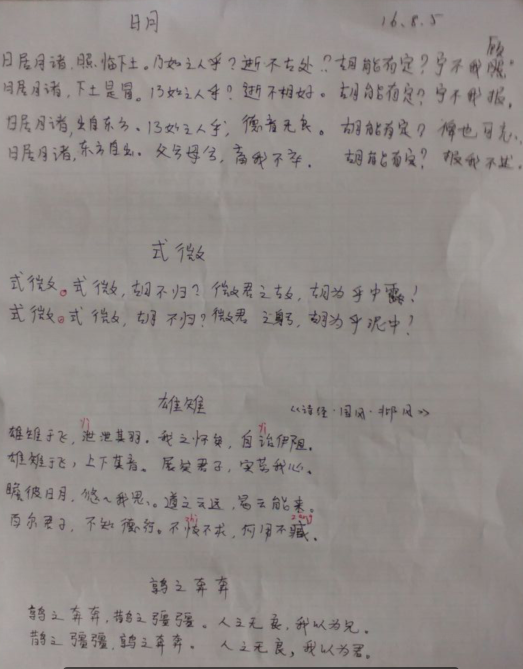 日月 16.8.5
顾
日居月诸,照临下土。乃如之人乎?逝不古处?胡能有定?宁不我顾。
日居月诸,下土是冒。乃如之人乎?逝不相好。胡能有定?宁不我报。
日居月诸,出自东方。乃如之人乎,德音无良。胡能有定?俾也可忘。
日居月诸,东方自出。父兮母兮,畜我不卒。胡能有定?报我不述。
式微
式微。式微,胡不归?微君之故,胡为乎中露!
式微。式微,胡不归?微君之躬,胡为乎泥中!
雄雉 《诗经·国风·邶风》
yi yi
雄雉于飞,泄泄其羽。我之怀矣,自诒伊阻。
雄雉于飞,上下其音。展矣君子,实劳我心。
瞻彼日月,悠~我思。道之云远,曷云能来。
zhi zang
百尔君子,不知德行。不忮不求,何用不臧。
鹑之奔奔
鹑之奔奔,鹊之彊彊。人之无良,我以为兄。
鹊之彊彊,鹑之奔奔。人之无良,我以为君。